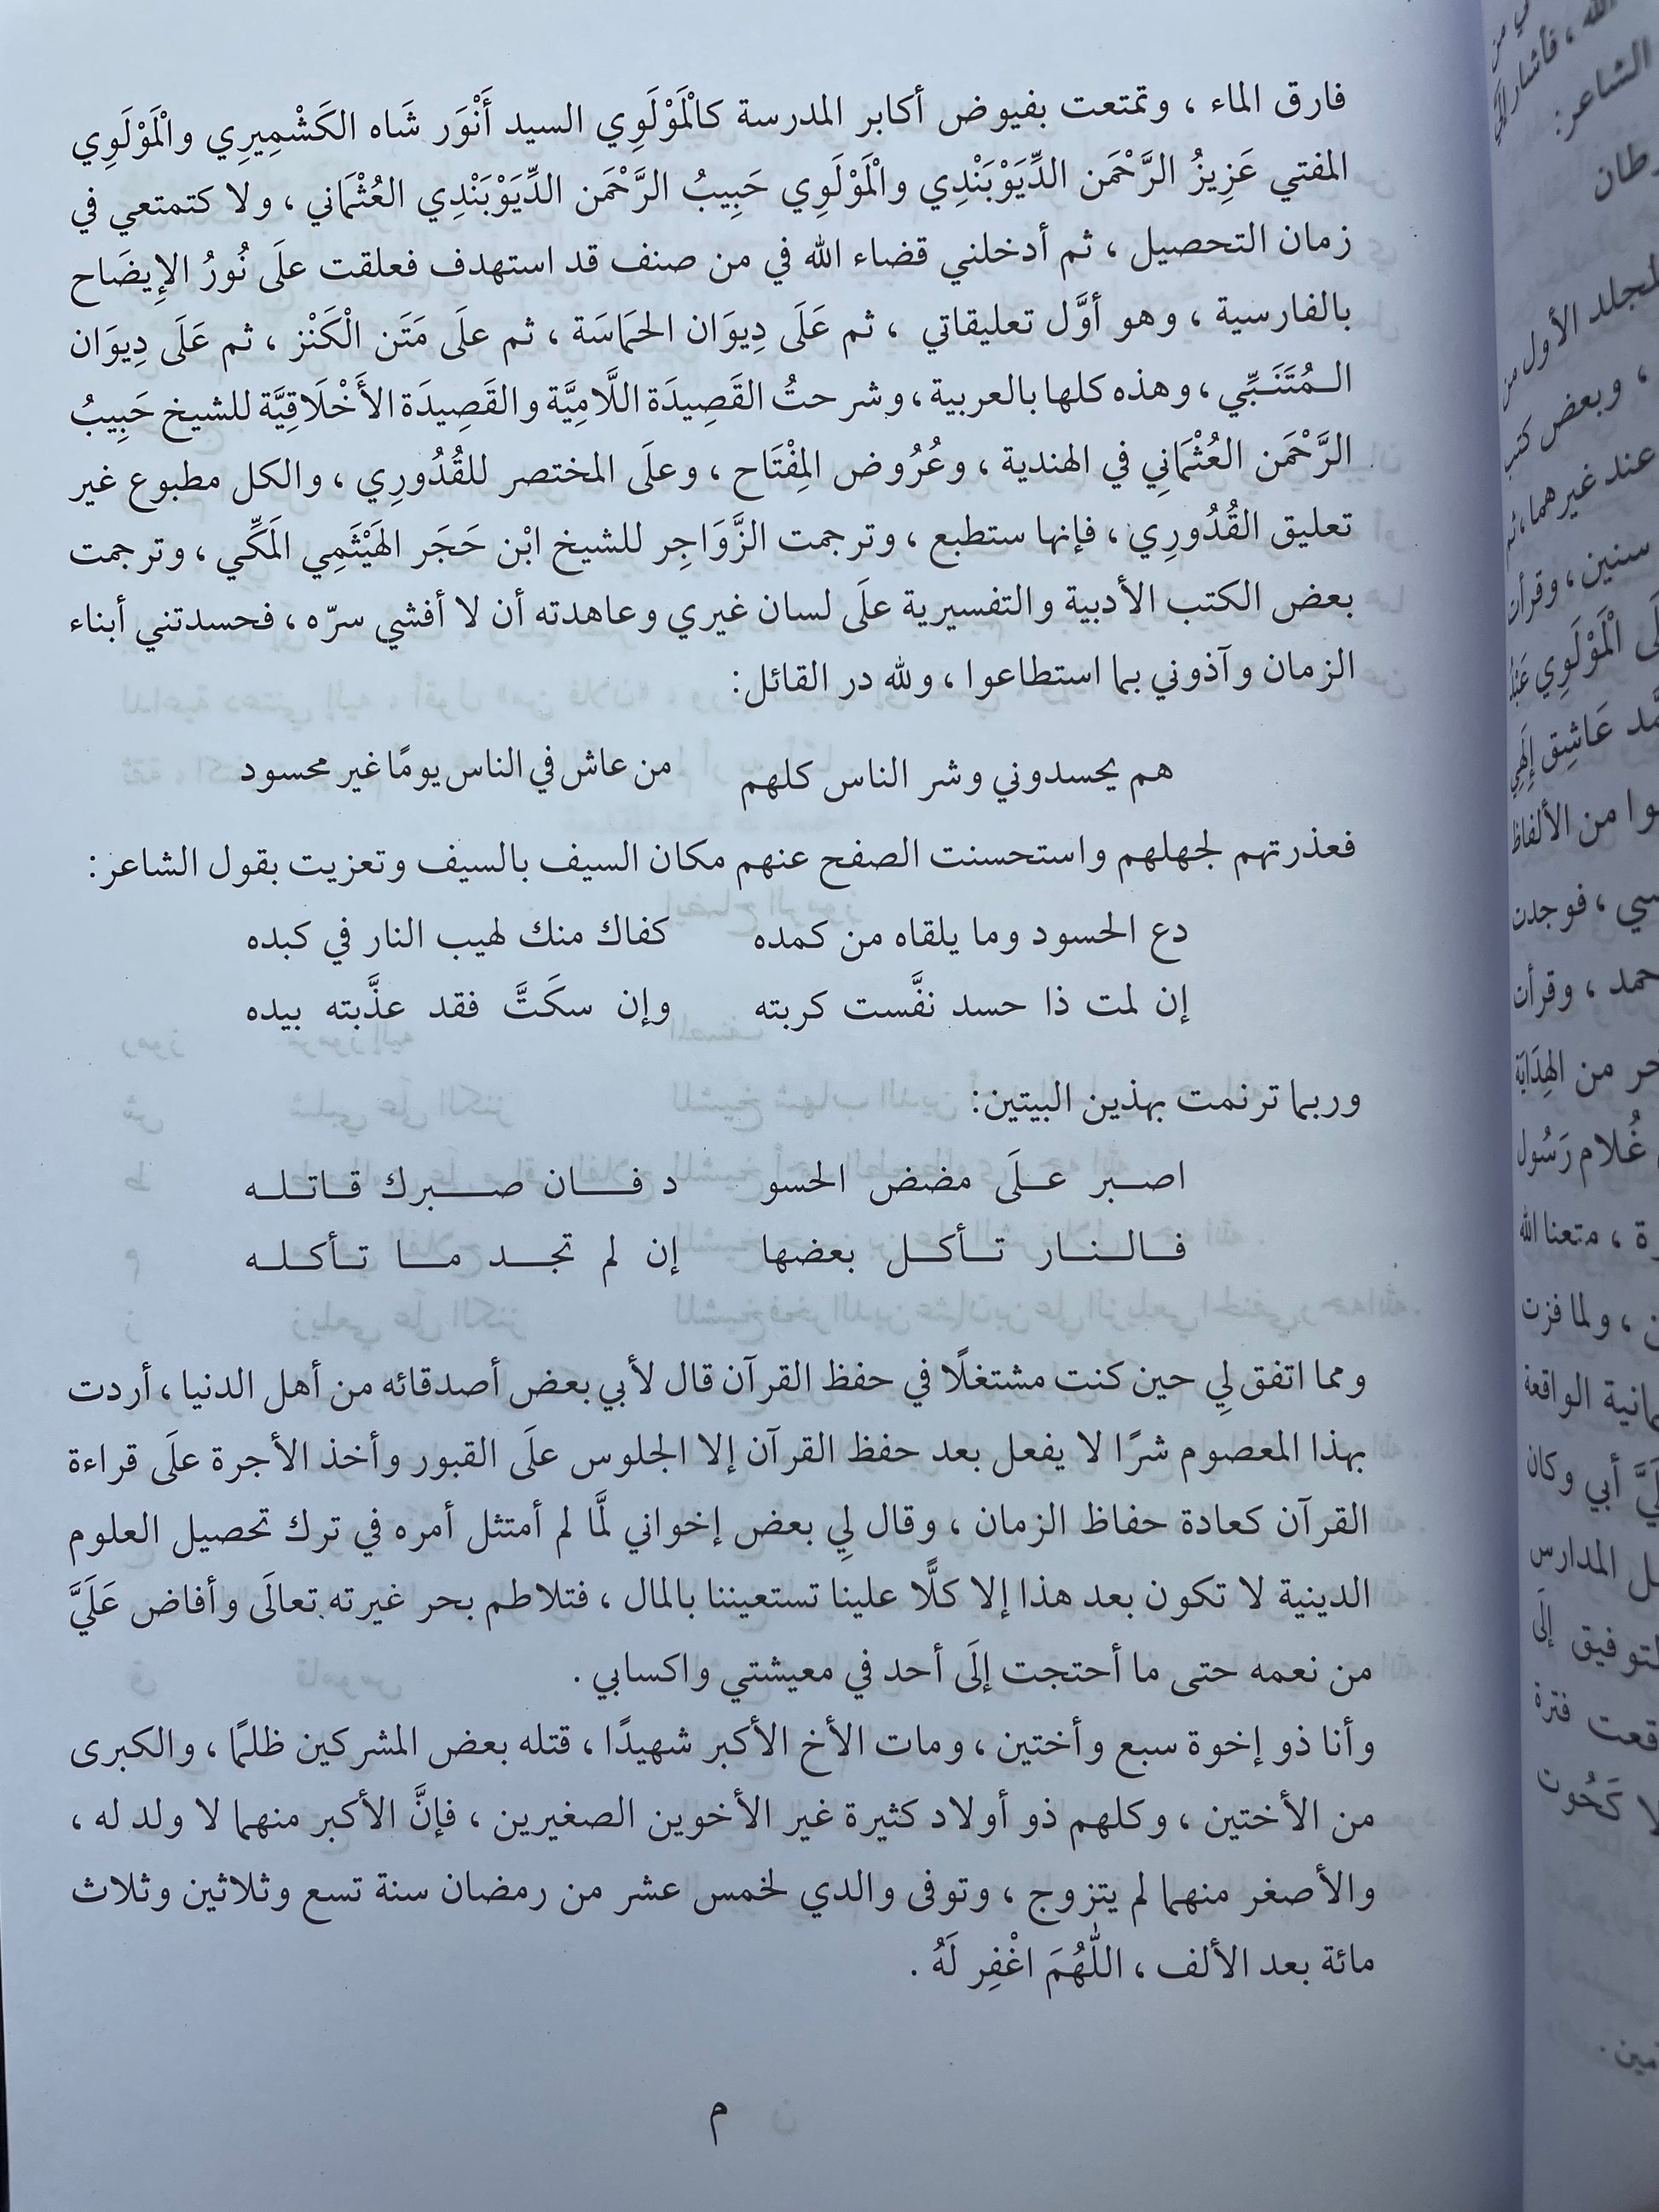 فارق الماء ، وتمتعت بفيوض أكابر المدرسة كالْمَوْلَوِي السيد أَنْوَر شَاه الكَشْمِيرِي والْمَوْلَوِي
المفتي عَزِيزُ الرَّحْمَن الدِّيَوْبَنْدِي والْمَوْلَوِي حَبِيبُ الرَّحْمَن الدِّيَوْبَنْدِي العُثْمَاني ، ولا كتمتعي في
زمان التحصيل ، ثم أدخلني قضاء الله في من صنف قد استهدف فعلقت علَى نُورُ الإِيضَاح
بالفارسية ، وهو أوَّل تعليقاتي ، ثم عَلَى دِيوَان الحَمَاسَة ، ثم علَى مَتَن الْكَنْز ، ثم عَلَى دِيوَان
الـمُتَنَـبِّي ، وهذه كلها بالعربية ، وشرحتُ القَصِيدَة اللَّامِيَّة والقَصِيدَة الأَخْلَاقِيَّة للشيخ حَبِيبُ
الرَّحْمَن العُثْمَانِي في الهندية ، وعُرُوض المِفْتَاح ، وعلَى المختصر للقُدُورِي ، والكل مطبوع غير
تعليق القُدُورِي ، فإنها ستطبع ، وترجمت الزَّوَاجِر للشيخ ابْن حَجَر الهَيْثَمِي المَكِّي ، وترجمت
بعض الكتب الأدبية والتفسيرية علَى لسان غيري وعاهدته أن لا أفشي سرّه ، فحسدتني أبناء
الزمان وآذوني بما استطاعوا ، ولله در القائل:
هم يحسدوني وشر الناس كلهم من عاش في الناس يومًا غير محسود
فعذرتهم لجهلهم واستحسنت الصفح عنهم مكان السيف بالسيف وتعزيت بقول الشاعر:
دع الحسود وما يلقاه من كمده كفاك منك لهيب النار في كبده
إن لمت ذا حسد نفَّست كربته وإن سكَتَّ فقد عذَّبته بيده
وربما ترنمت بهذين البيتين:
اصـبر عـلَى مضض الحسو د فـان صـبرك قـاتـلـه
فـالـنـار تـأكـل بعضها إن لم تجـد مـا تـأكـلـه
ومما اتفق لِي حين كنت مشتغلًا في حفظ القرآن قال لأبي بعض أصدقائه من أهل الدنيا ، أردت
بهذا المعصوم شرًا لا يفعل بعد حفظ القرآن إلا الجلوس علَى القبور وأخذ الأجرة علَى قراءة
القرآن كعادة حفاظ الزمان ، وقال لِي بعض إخواني لَّما لم أمتثل أمره في ترك تحصيل العلوم
الدينية لا تكون بعد هذا إلا كلًّا علينا تستعيننا بالمال ، فتلاطم بحر غيرته تعالَى وأفاض عَلَيَّ
من نعمه حتى ما أحتجت إلَى أحد في معيشتي واكسابي .
وأنا ذو إخوة سبع وأختين ، ومات الأخ الأكبر شهيدًا ، قتله بعض المشركين ظلمًا ، والكبرى
من الأختين ، وكلهم ذو أولاد كثيرة غير الأخوين الصغيرين ، فإنَّ الأكبر منهما لا ولد له ،
والأصغر منهما لم يتزوج ، وتوفى والدي لخمس عشر من رمضان سنة تسع وثلاثين وثلاث
مائة بعد الألف ، اللّٰهُمَ اغْفِر لَهُ .
م